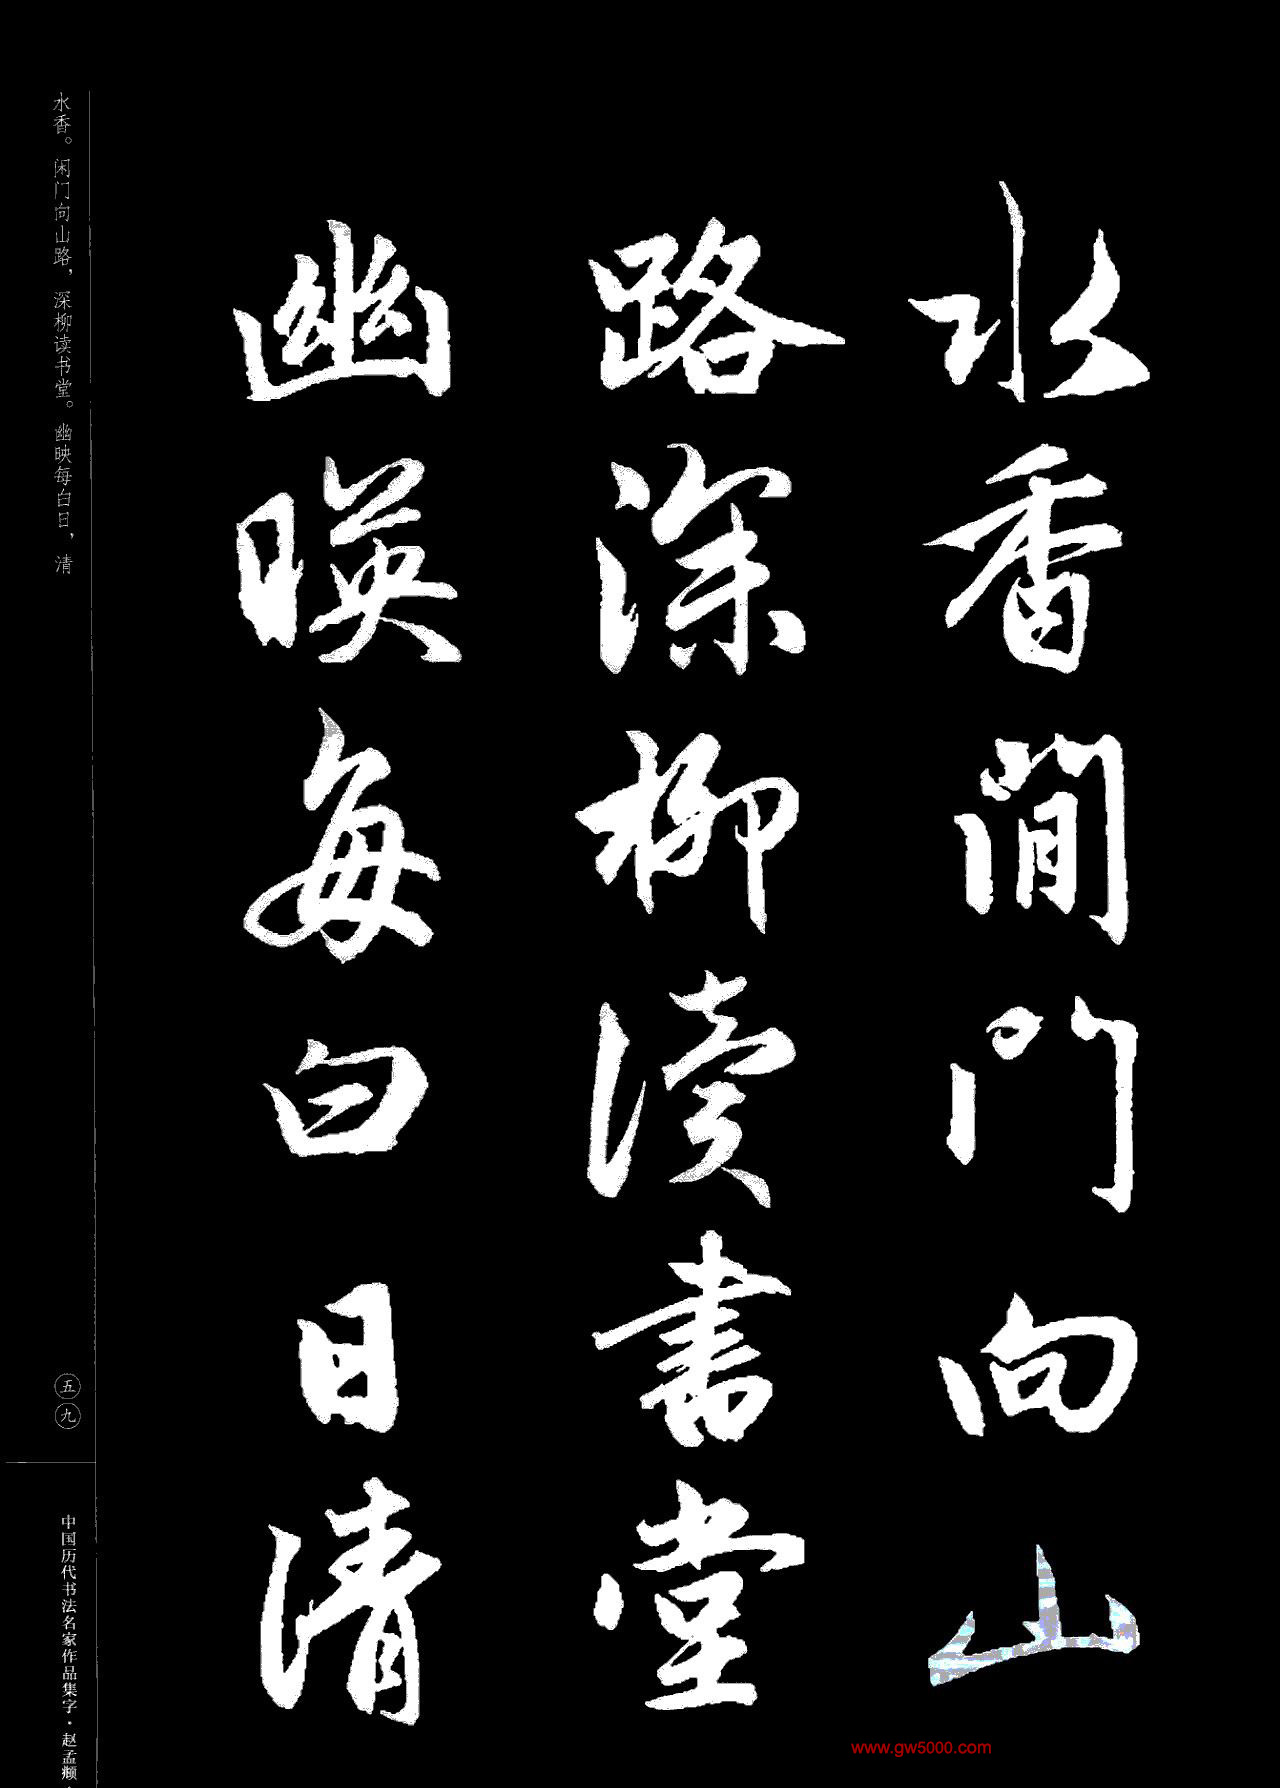 水香閒門向山
路深柳读書堂
幽暎每白日清
水香。闲门向山路，深柳读书堂。幽映每白日，清
五九
中国历代书法名家作品集字·赵孟頫·
www.gw5000.com